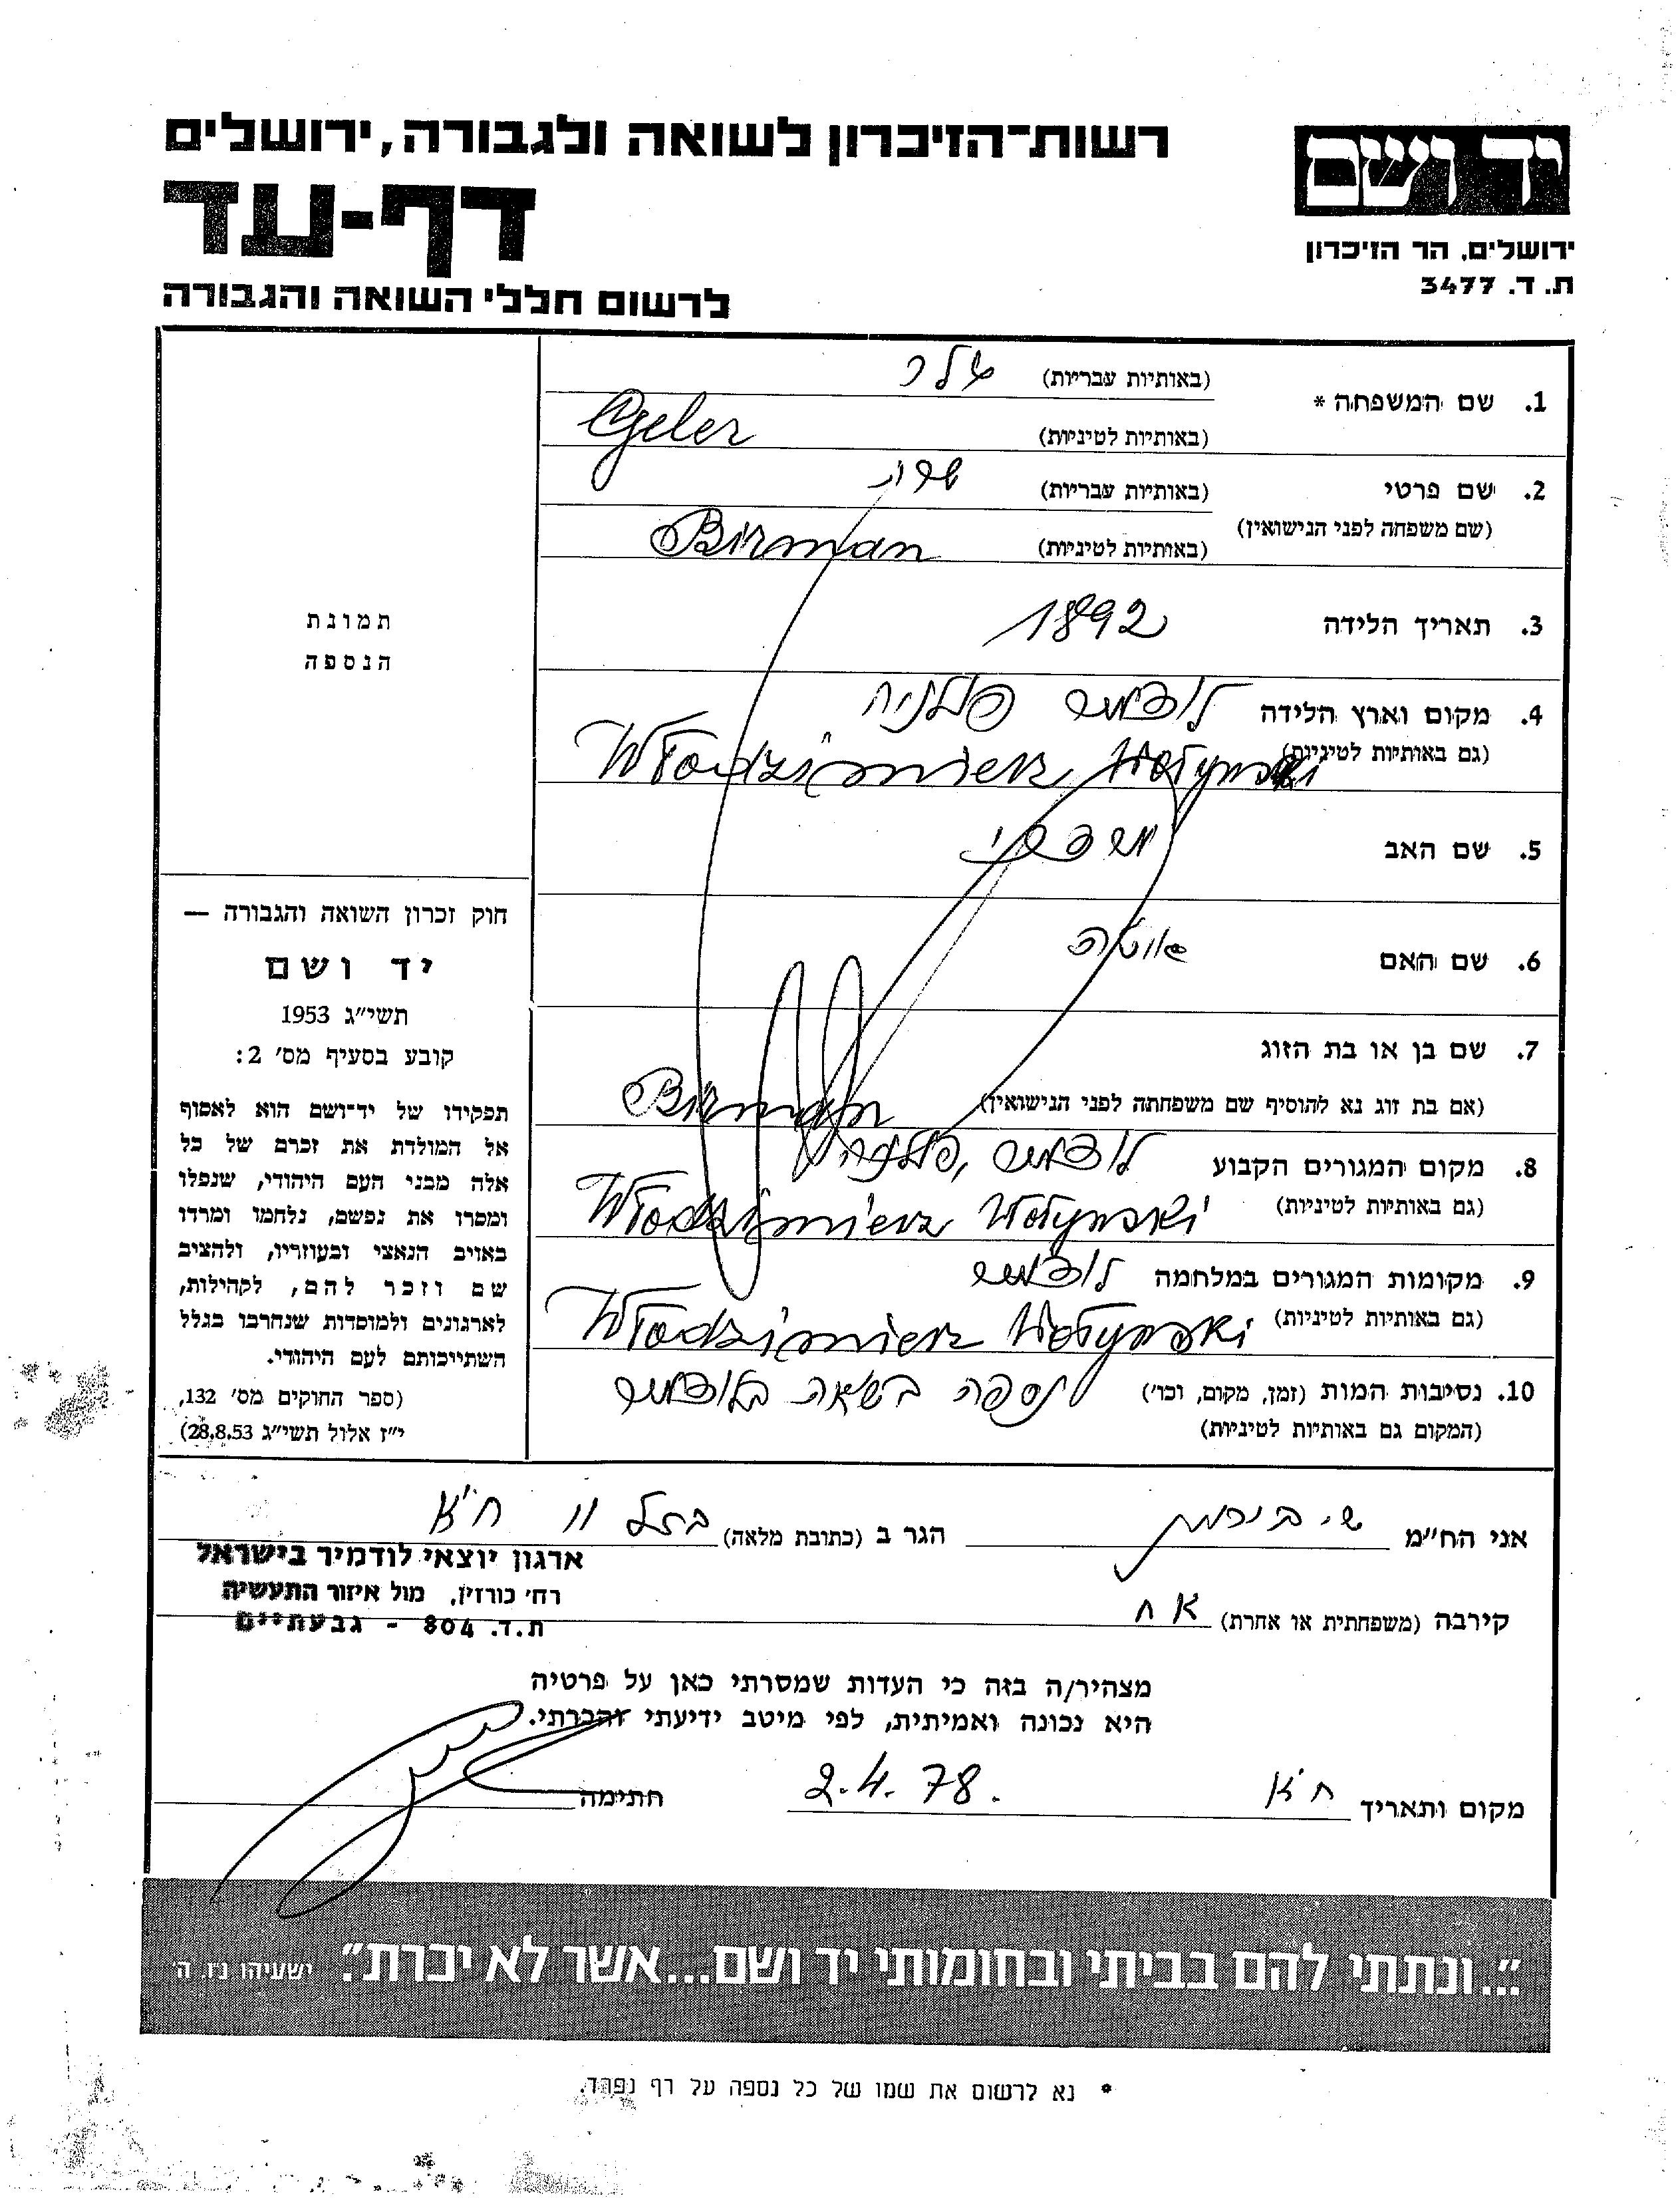 רשות־הזיכרון לשואה ולגבורה, ירושלים
יד ושם
דף-עד
ירושלים, הר הזיכרון
ת. ד. 3477
לרשום חללי השואה והגבורה
1. שם המשפחה * (באותיות עבריות) גלר
(באותיות לטיניות) Geler
2. שם פרטי (באותיות עבריות)
(שם משפחה לפני הנישואין) (באותיות לטיניות) Birman
3. תאריך הלידה 1892
4. מקום וארץ הלידה לודמיר פולניה
(גם באותיות לטיניות) Włodzimierz Wołynski
5. שם האב
6. שם האם
7. שם בן או בת הזוג
(אם בת זוג נא להוסיף שם משפחתה לפני הנישואין) Birman
8. מקום המגורים הקבוע לודמיר, פולניה
(גם באותיות לטיניות) Włodzimierz Wołynski
9. מקומות המגורים במלחמה לודמיר
(גם באותיות לטיניות) Włodzimierz Wołynski
10. נסיבות המות (זמן, מקום, וכו') נספה בשואה בלודמיר
(המקום גם באותיות לטיניות)
תמונת
הנספה
חוק זכרון השואה והגבורה —
יד ושם
תשי״ג 1953
קובע בסעיף מס' 2:
תפקידו של יד־ושם הוא לאסוף
אל המולדת את זכרם של כל
אלה מבני העם היהודי, שנפלו
ומסרו את נפשם, נלחמו ומרדו
באויב הנאצי ובעוזריו, ולהציב
שם וזכר להם, לקהילות,
לארגונים ולמוסדות שנחרבו בגלל
השתייכותם לעם היהודי.
(ספר החוקים מס' 132,
י״ז אלול תשי״ג 28.8.53)
אני הח״מ ש. בירמן הגר ב (כתובת מלאה) 11 ת״א
ארגון יוצאי לודמיר בישראל
רח' כורזין, מול איזור התעשיה
ת.ד. 804 - גבעתיים
קירבה (משפחתית או אחרת) אח
מצהיר/ה בזה כי העדות שמסרתי כאן על פרטיה
היא נכונה ואמיתית, לפי מיטב ידיעתי והכרתי.
מקום ותאריך ת״א 2.4.78. חתימה
״...ונתתי להם בביתי ובחומותי יד ושם...אשר לא יכרת״. ישעיהו נו, ה'
* נא לרשום את שמו של כל נספה על דף נפרד.